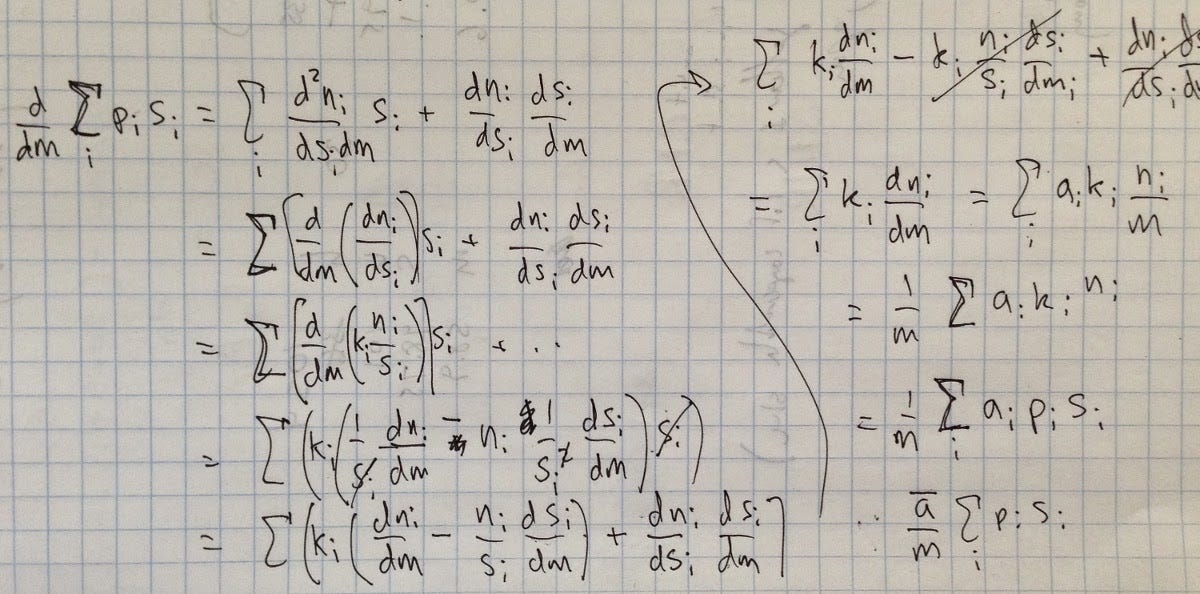 d/dm Σ_i p_i s_i = Σ_i d²n_i/ds_i dm s_i + dn_i/ds_i ds_i/dm
= Σ [d/dm (dn_i/ds_i)] s_i + dn_i/ds_i ds_i/dm
= Σ [d/dm (k_i n_i/s_i)] s_i + ..
= Σ (k_i (1/s_i dn_i/dm - n_i 1/s_i² ds_i/dm) s_i)
= Σ (k_i (dn_i/dm - n_i/s_i ds_i/dm) + dn_i/ds_i ds_i/dm]
Σ_i k_i dn_i/dm - k_i n_i/s_i ds_i/dm_i + dn_i/ds_i
= Σ_i k_i dn_i/dm = Σ_i a_i k_i n_i/m
= 1/m Σ a_i k_i n_i
= 1/m Σ_i a_i p_i s_i
∴ a̅/m Σ_i p_i s_i